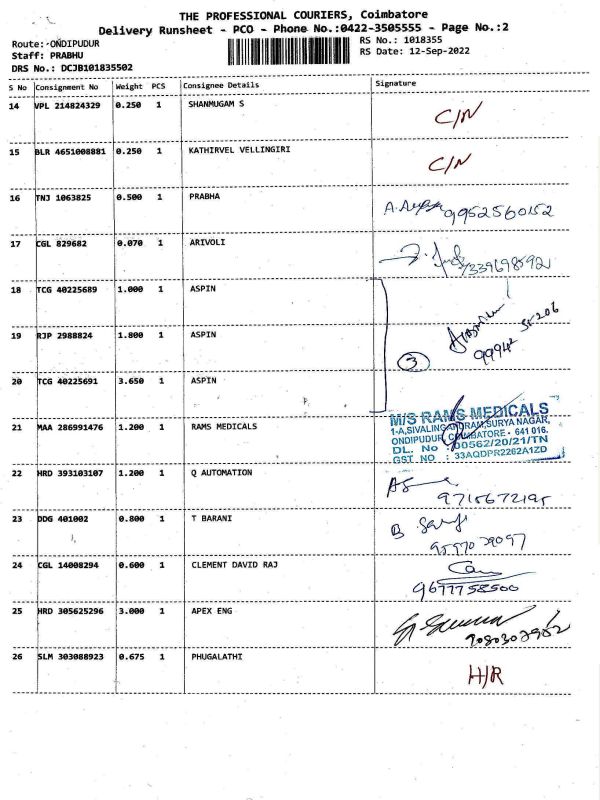 THE PROFESSIONAL COURIERS, Coimbatore
Delivery Runsheet - PCO - Phone No.:0422-3505555 - Page No.:2
Route: ONDIPUDUR RS No.: 1018355
Staff: PRABHU RS Date: 12-Sep-2022
DRS No.: DCJB101835502
S No Consignment No Weight PCS Consignee Details Signature
14 VPL 214824329 0.250 1 SHANMUGAM S C/N
15 BLR 4651008881 0.250 1 KATHIRVEL VELLINGIRI C/N
16 TNJ 1063825 0.500 1 PRABHA 9952560152
17 CGL 829682 0.070 1 ARIVOLI
18 TCG 40225689 1.000 1 ASPIN
19 RJP 2988824 1.800 1 ASPIN 3
20 TCG 40225691 3.650 1 ASPIN
21 MAA 286991476 1.200 1 RAMS MEDICALS
M/S RAMS MEDICALS
1-A,SIVALINGAPURAM,SURYA NAGAR,
ONDIPUDUR, COIMBATORE - 641 016.
DL. No 00562/20/21/TN
GST NO : 33AQDPR2262A1ZD
22 HRD 393103107 1.200 1 Q AUTOMATION
9715672195
23 DDG 401002 0.800 1 T BARANI
24 CGL 14008294 0.600 1 CLEMENT DAVID RAJ
9677758500
25 HRD 305625296 3.000 1 APEX ENG
26 SLM 303088923 0.675 1 PHUGALATHI H/R